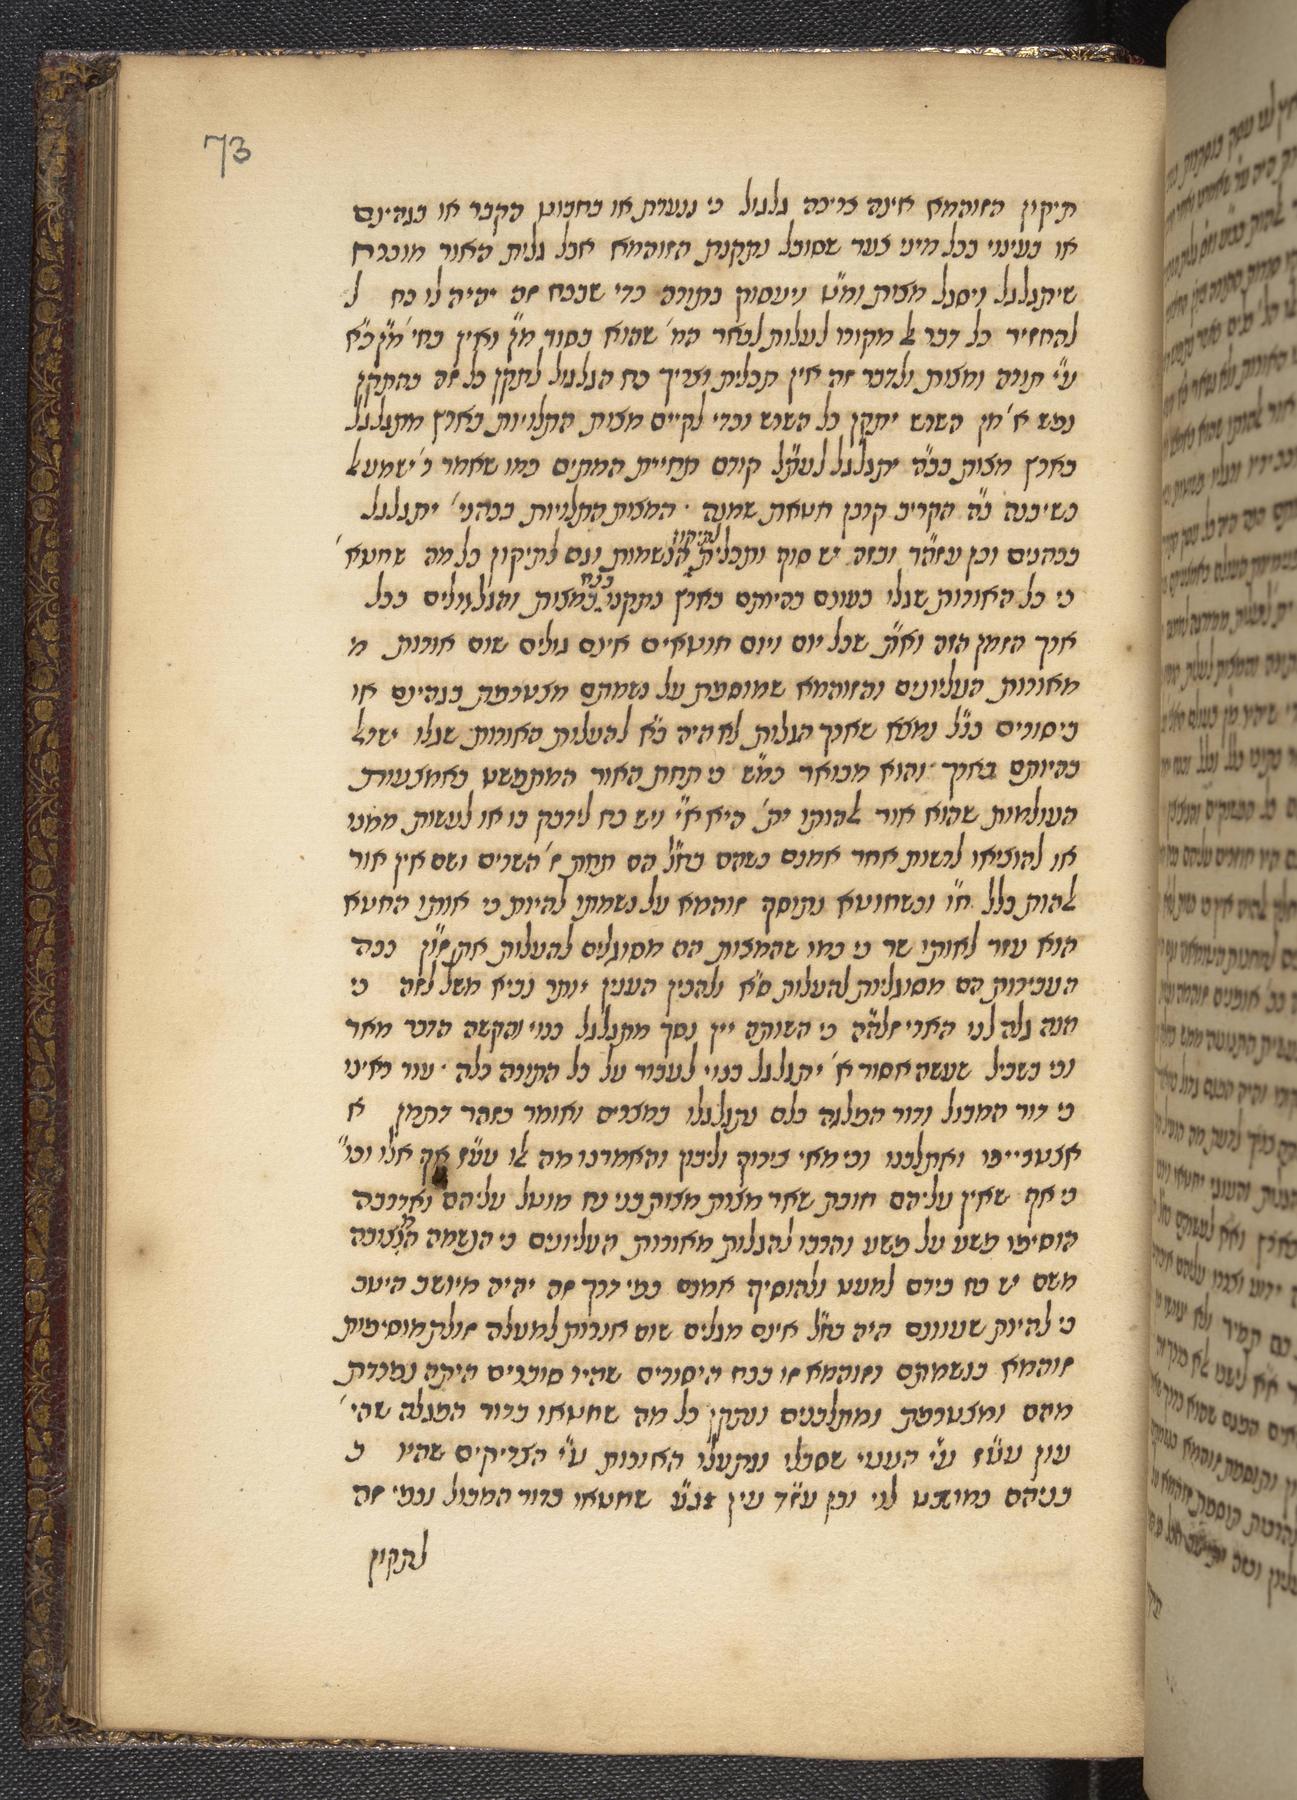 73
תיקון הזוהמא אינה צריכה גלגול כי ננערת או בחבוט הקבר או בגהינם
או בעינוי בכל מיני צער שסובל נתקנת הזוהמא אבל גלות האור מוכרח
שיתגלגל ויסגל מצות ומ״ט ויעסוק בתורה כדי שבכח זה יהיה לו כח ל
להחזיר כל דבר אל מקורו לעלות לבאר המ׳ שהוא בסוד מ״ן ואין בחי׳ מ״ן כ״א
ע״י תורה ומצות ולדבר זה אין תכלית וצריך כח הגלגול לתקן כל זה בהתקן
נפש א׳ מן השרש יתקן כל השרש וכדי לקיים מצות התלויות בארץ מתגלגל
בארץ מצות בב״ה יתגלגל לעת״ל קודם תחיית המתים כמו שאמר ר׳ ישמעאל
כשיבנה ב״ה הקריב קרבן חטאת שמנה · המצות התלויות בכהני׳ יתגלגל
בכהנים וכן עז״הד ובזה יש סוף ותכלית לתיקון הנשמות וגם לתיקון כל מה שחטא׳
כי כל האורות שגלו בעונם בהיותם בארץ נתקני׳ בכח המצות והגלגולים בכל
אורך הזמן הזה ואת שכל יום ויום חוטאים אינם גולים שום אורות מ
מאורות העליונים והזוהמא שמוספת על נשמתם מצטרפת בגהינם או
ביסורים כנ״ל נמצא שאורך הגלות לא היה כ״א להעלות האורות שגלו ישראל
בהיותם בארץ · והוא מבואר כמ״ש כי תחת האור המתפשט באמצעות
העולמות שהוא אור אלהותו ית׳ היא א״י ויש כח לידבק בו או לעשות ממנו
או להוציאו לרשות אחר אמנם כשהם בח״ל הם תחת ע׳ השרים ושם אין אור
אלהות כלל ח״ו וכשחוטא נתוסף זוהמא על נשמתו להיות כי אותו החטא
הוא עזר לאותו שר כי כמו שהמצות הם מסוגלים להעלות את זו״ן ככה
העבירות הם מסוגליות להעלות ס״א ולהבין הענין יותר נביא משל לזה כי
הנה גלה לנו הארי זלה״ה כי השותה יין נסך מתגלגל בגוי והקשה הדבר מאד
וכי בשביל שעשה אסור א׳ יתגלגל בגוי לעבור על כל התורה כלה · עוד ראינו
כי דור המבול ודור הפלגה כלם נתגלגלו במצרים ואומר בזהר דתמן א
אצטרייפו ואתלבנו וכי מאי בירוק וליבון והאמרנו מה לו עט״ז אף אלו וכו׳
כי אף שאין עליהם חובת שאר מצות מצות בני נח מוטל עליהם ואדרבה
הוסיפו פשע על פשע והרבו להגלות מאורות העליונים כי הנשמה החצובה
משם יש כח בידם למעט ולהוסיף אמנם כפי דרך זה יהיה מיושב היטב
כי להיות שעוונם היה בח״ל אינם מגלים שום אורות למעלה זולת מוסיפות
זוהמא בנשמתם וזוהמא זו בכח היסורים שהיו סובבים היתה נפרדת
מהם ומצטרפת ומתלבנים ונתקן כל מה שחטאו בדור הפגלה שהי׳
עון עט״ז ע״י העטי שסבלו ונתעלו האורות ע״י הצדיקים שהיו ב
בניהם כמושבט לוי וכן עז״ד עין שחטאו בדור המבול ובפי זה
לתקון